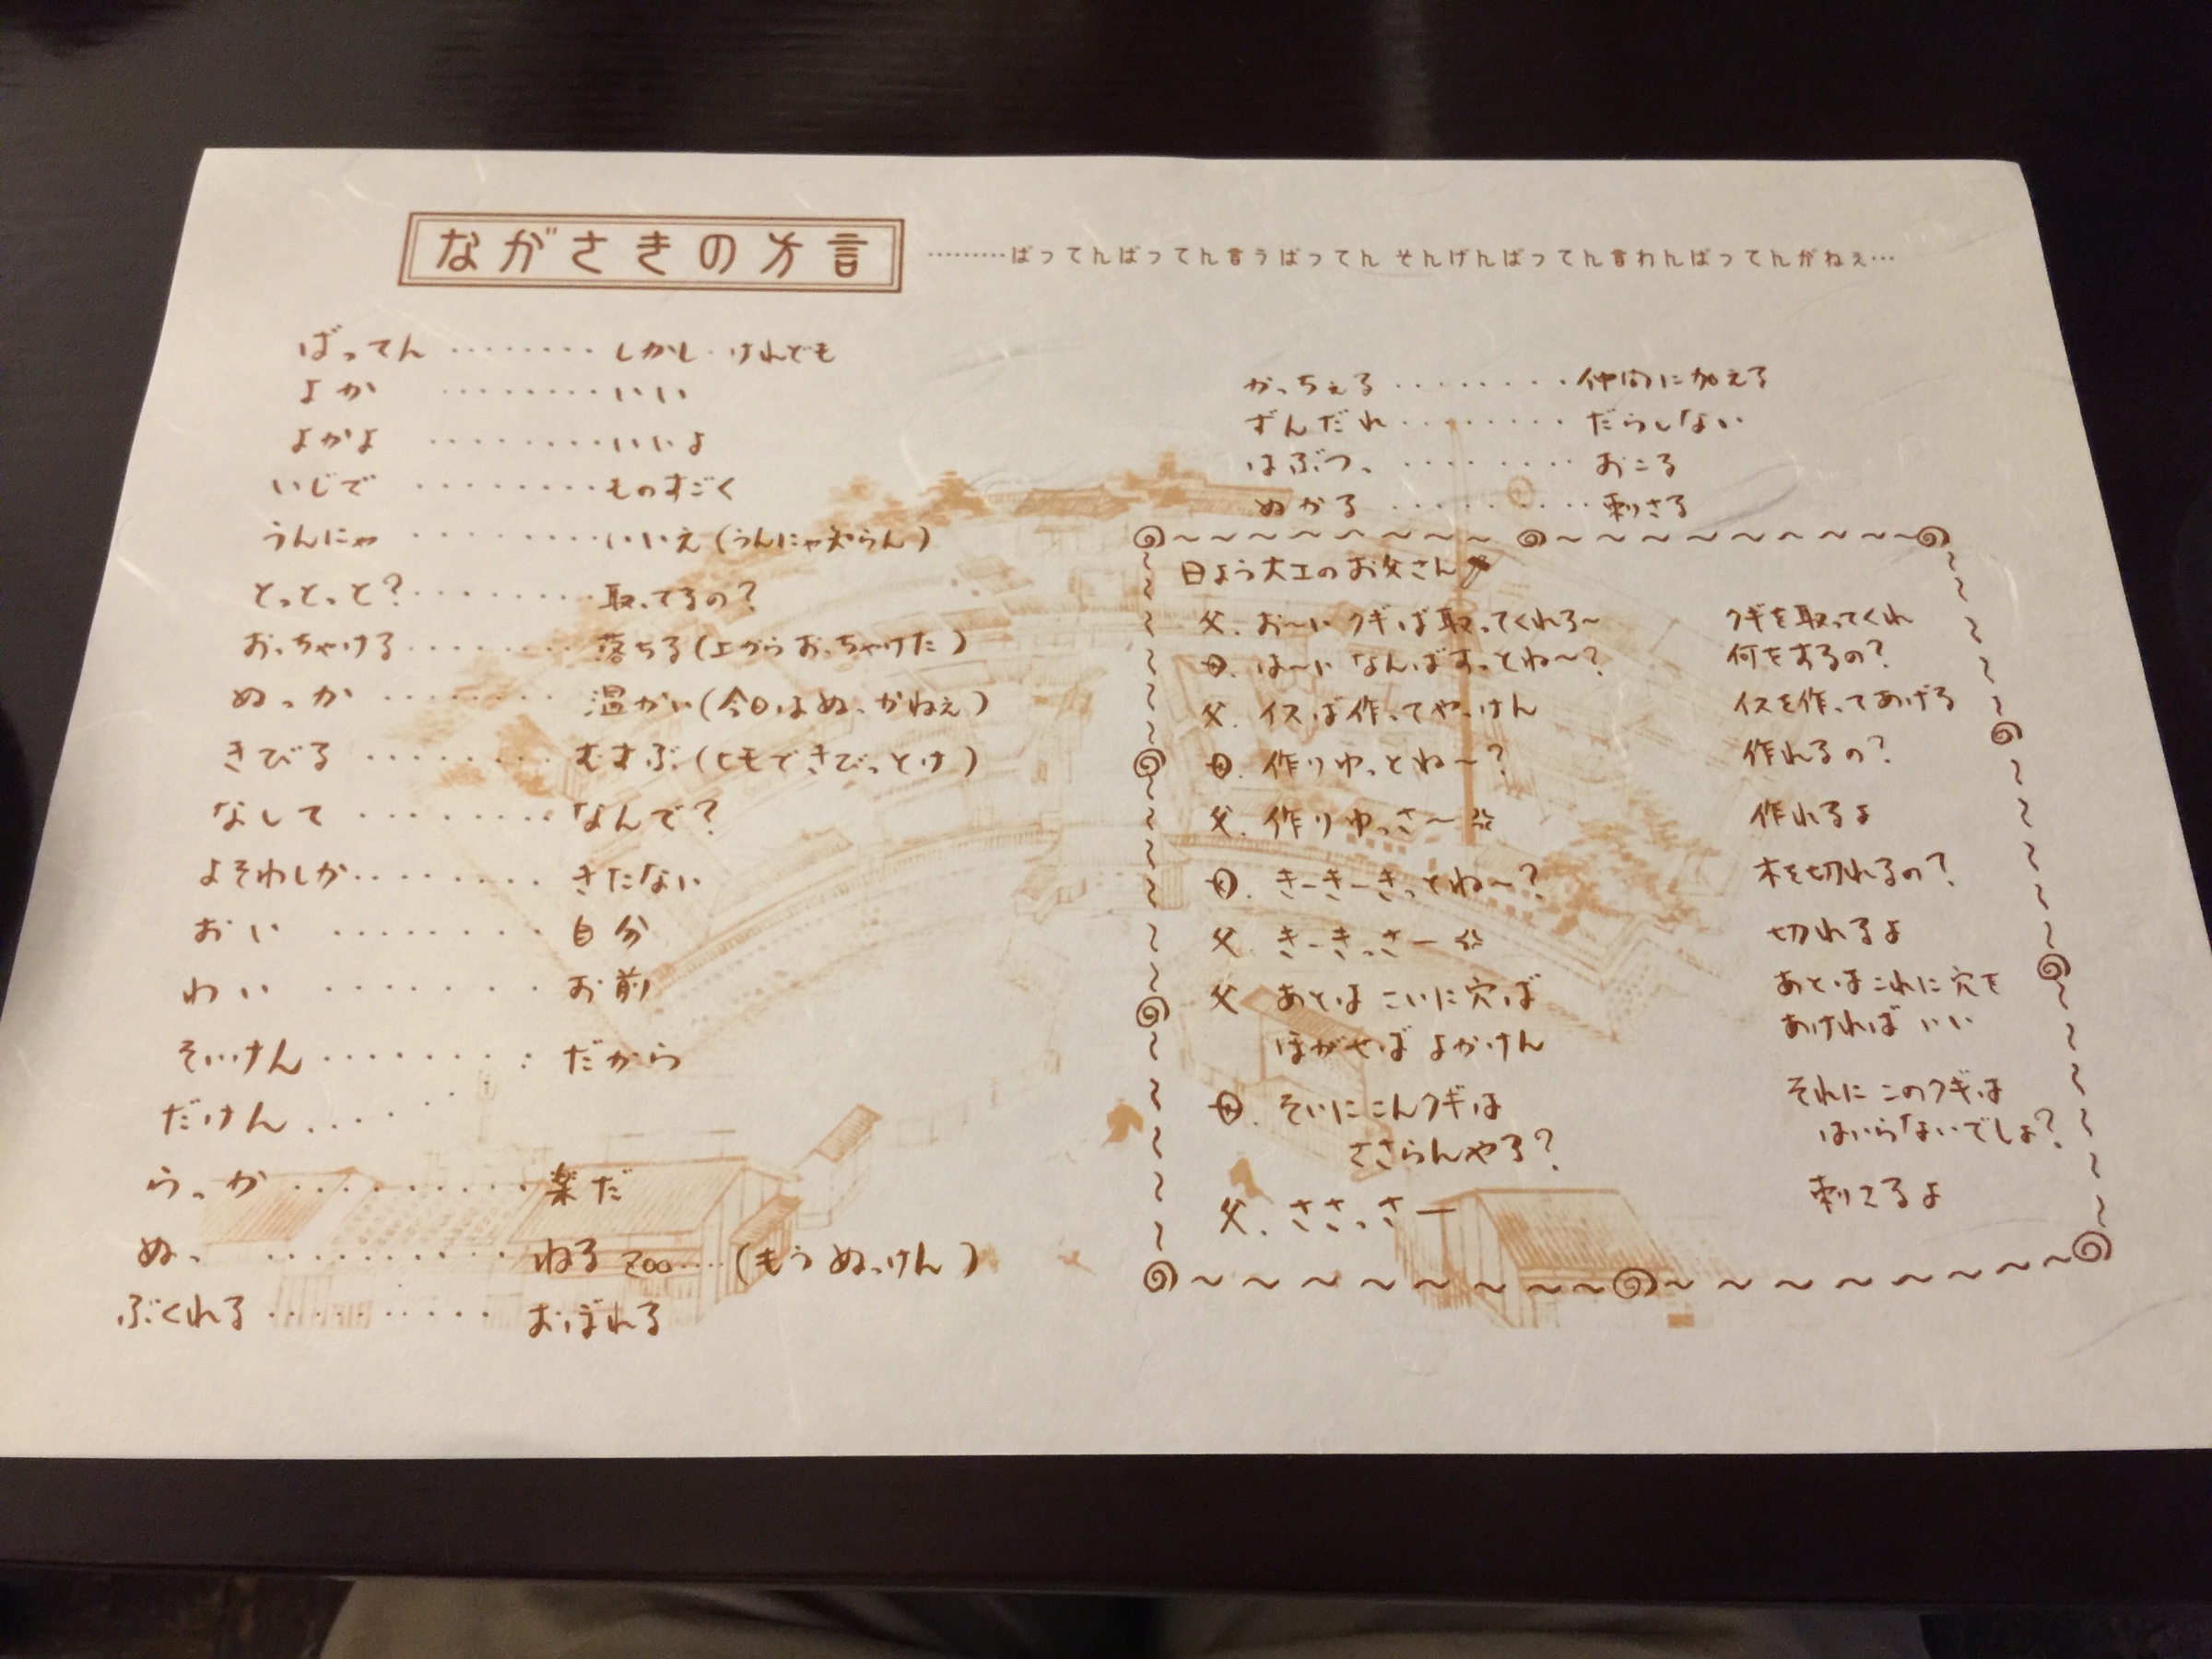 ながさきの方言 ………ばってんばってん言うばってん そんげんばってん言わんばってんがねぇ…
ばってん ········ しかし・けれども
よか ········ いい
よかよ ········ いいよ
いじで ········ ものすごく
うんにゃ ········ いいえ(うんにゃ知らん)
とっとっと? ········ 取ってるの?
おっちゃける ········ 落ちる(上からおっちゃけた)
ぬっか ········ 温かい(今日はぬっかねぇ)
きびる ········ むすぶ(ヒモできびっとけ)
なして ········ なんで?
よそわしか ········ きたない
おい ········ 自分
わい ········ お前
そいけん ········ だから
だけん ····
らっか ········ 楽だ
ぬっ ········ ねる zoo····(もうぬっけん)
ぶくれる ········ おぼれる
かっちぇる ········ 仲間に加える
ずんだれ ········ だらしない
はぶつっ ········ おこる
ぬかる ········ 刺さる
日よう大工のお父さん
父. お〜い クギば取ってくれろ〜 クギを取ってくれ
母. は〜い なんばすっとね〜? 何をするの?
父. イスば作ってやっけん イスを作ってあげる
母. 作りゆっとね〜? 作れるの?
父. 作りゆっさ〜 作れるよ
母. きーきーきっとね〜? 木を切れるの?
父. きーきっさー 切れるよ
父 あとは こいに穴ば あとはこれに穴を
ほがせば よかけん あければ いい
母. そいにこんクギは それに このクギは
ささらんやろ? はいらないでしょ?
父. ささっさー 刺さるよ